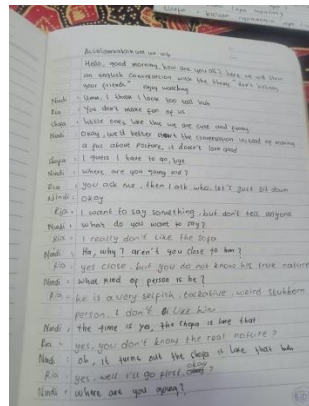 Assalamualaikum wr. wb
Hello, good morning, how are you all? here we will show
an english conversation with the theme don't betray
your friends" enjoy watching
Nindi : Umm, I think I look too tall huh
Ria : You don't make fun of us
Shopa : little ones like this we are cute and funny
Nindi : Okay, we'd better start the conversation instead of making
a fus about posture, it doesn't look good
Shopa : I guess I have to go, bye
Nindi : Where are you going sha?
Ria : you ask me, then I ask who, let's just sit down
Nindi : okay
Ria : I want to say something, but don't tell anyone
Nindi : what do you want to say?
Ria : I really don't like the sofa
Nindi : Ha, why? aren't you close to him?
Ria : yes close, but you do not know his true nature
Nindi : what kind of person is he?
Ria : he is a very selfish, talkative, weird stubborn
person. I don't like him
Nindi : the time is yes, the shopa is like that
Ria : yes, you don't know the real nature?
Nindi : oh, it turns out the shopa is like that huh
Ria : yes, well i'll go first, okay?
Nindi : where are you going?